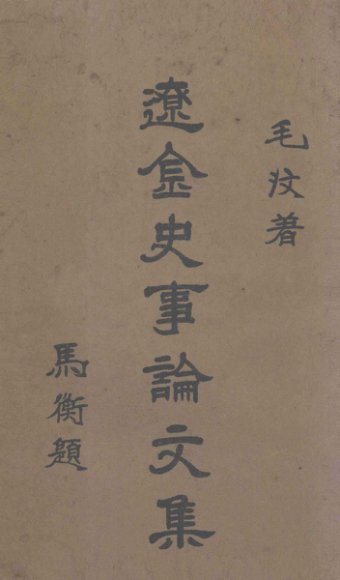 毛汶著
遼金史事論文集
馬衡題